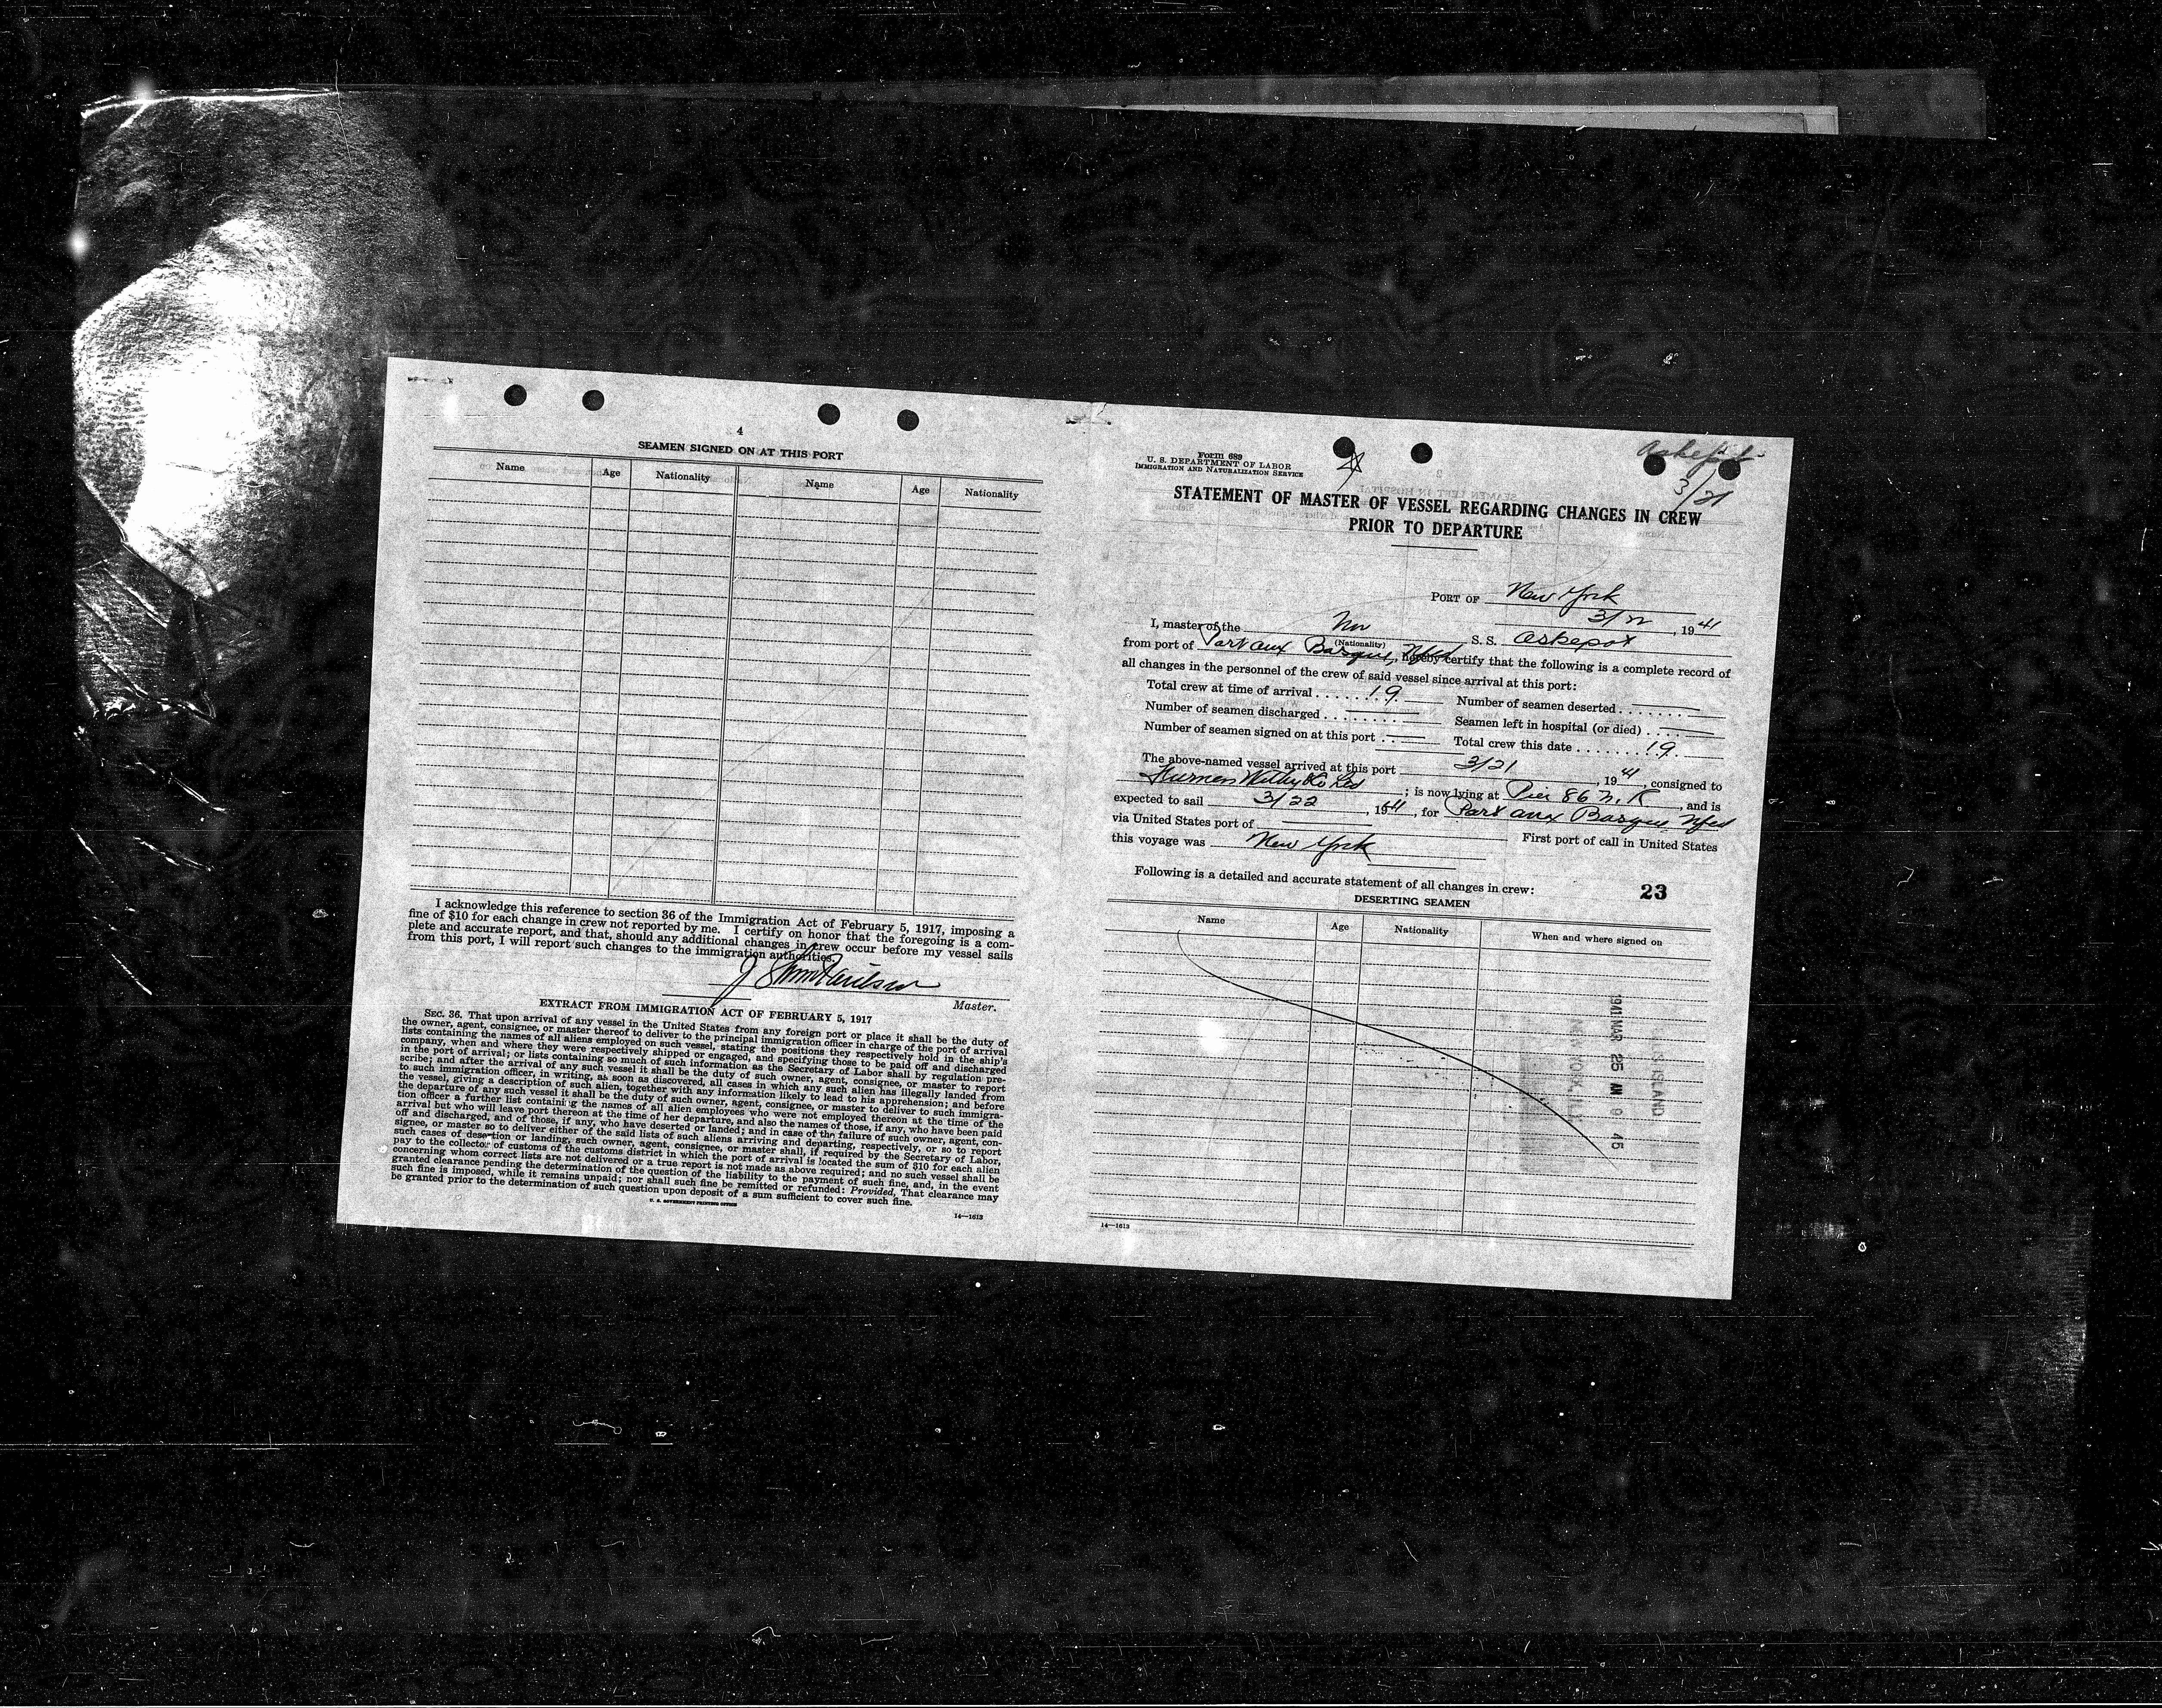 4
SEAMEN SIGNED ON AT THIS PORT
Name Age Nationality Name Age Nationality
I acknowledge this reference to section 36 of the Immigration Act of February 5, 1917, imposing a
fine of $10 for each change in crew not reported by me. I certify on honor that the foregoing is a com-
plete and accurate report, and that, should any additional changes in crew occur before my vessel sails
from this port, I will report such changes to the immigration authorities.
Master.
EXTRACT FROM IMMIGRATION ACT OF FEBRUARY 5, 1917
SEC. 36. That upon arrival of any vessel in the United States from any foreign port or place it shall be the duty of
the owner, agent, consignee, or master thereof to deliver to the principal immigration officer in charge of the port of arrival
lists containing the names of all aliens employed on such vessel, stating the positions they respectively hold in the ship's
company, when and where they were respectively shipped or engaged, and specifying those to be paid off and discharged
in the port of arrival; or lists containing so much of such information as the Secretary of Labor shall by regulation pre-
scribe; and after the arrival of any such vessel it shall be the duty of such owner, agent, consignee, or master to report
to such immigration officer, in writing, as soon as discovered, all cases in which any such alien has illegally landed from
the vessel, giving a description of such alien, together with any information likely to lead to his apprehension; and before
the departure of any such vessel it shall be the duty of such owner, agent, consignee, or master to deliver to such immigra-
tion officer a further list containing the names of all alien employees who were not employed thereon at the time of the
arrival but who will leave port thereon at the time of her departure, and also the names of those, if any, who have been paid
off and discharged, and of those, if any, who have deserted or landed; and in case of the failure of such owner, agent, con-
signee, or master so to deliver either of the said lists of such aliens arriving and departing, respectively, or so to report
such cases of desertion or landing, such owner, agent, consignee, or master shall, if required by the Secretary of Labor,
pay to the collector of customs of the customs district in which the port of arrival is located the sum of $10 for each alien
concerning whom correct lists are not delivered or a true report is not made as above required; and no such vessel shall be
granted clearance pending the determination of the question of the liability to the payment of such fine, and, in the event
such fine is imposed, while it remains unpaid; nor shall such fine be remitted or refunded: Provided, That clearance may
be granted prior to the determination of such question upon deposit of a sum sufficient to cover such fine.
U. S. GOVERNMENT PRINTING OFFICE 14—1613
Form 689
U. S. DEPARTMENT OF LABOR
IMMIGRATION AND NATURALIZATION SERVICE
Askepot
3/21
STATEMENT OF MASTER OF VESSEL REGARDING CHANGES IN CREW
PRIOR TO DEPARTURE
PORT OF New York
3/22, 1941
I, master of the Nor S. S. Askepot
(Nationality)
from port of Port aux Basque, Nfld, hereby certify that the following is a complete record of
all changes in the personnel of the crew of said vessel since arrival at this port:
Total crew at time of arrival ..... 19 Number of seamen deserted .......
Number of seamen discharged ........ Seamen left in hospital (or died) ....
Number of seamen signed on at this port .. Total crew this date ....... 19
The above-named vessel arrived at this port 3/21, 1941, consigned to
Furness Withy & Co Ltd; is now lying at Pier 86 N. R, and is
expected to sail 3/22, 1941, for Port aux Basque Nfld
via United States port of First port of call in United States
this voyage was New York
Following is a detailed and accurate statement of all changes in crew: 23
DESERTING SEAMEN
Name Age Nationality When and where signed on
1941 MAR 25 AM 9 45
14—1613